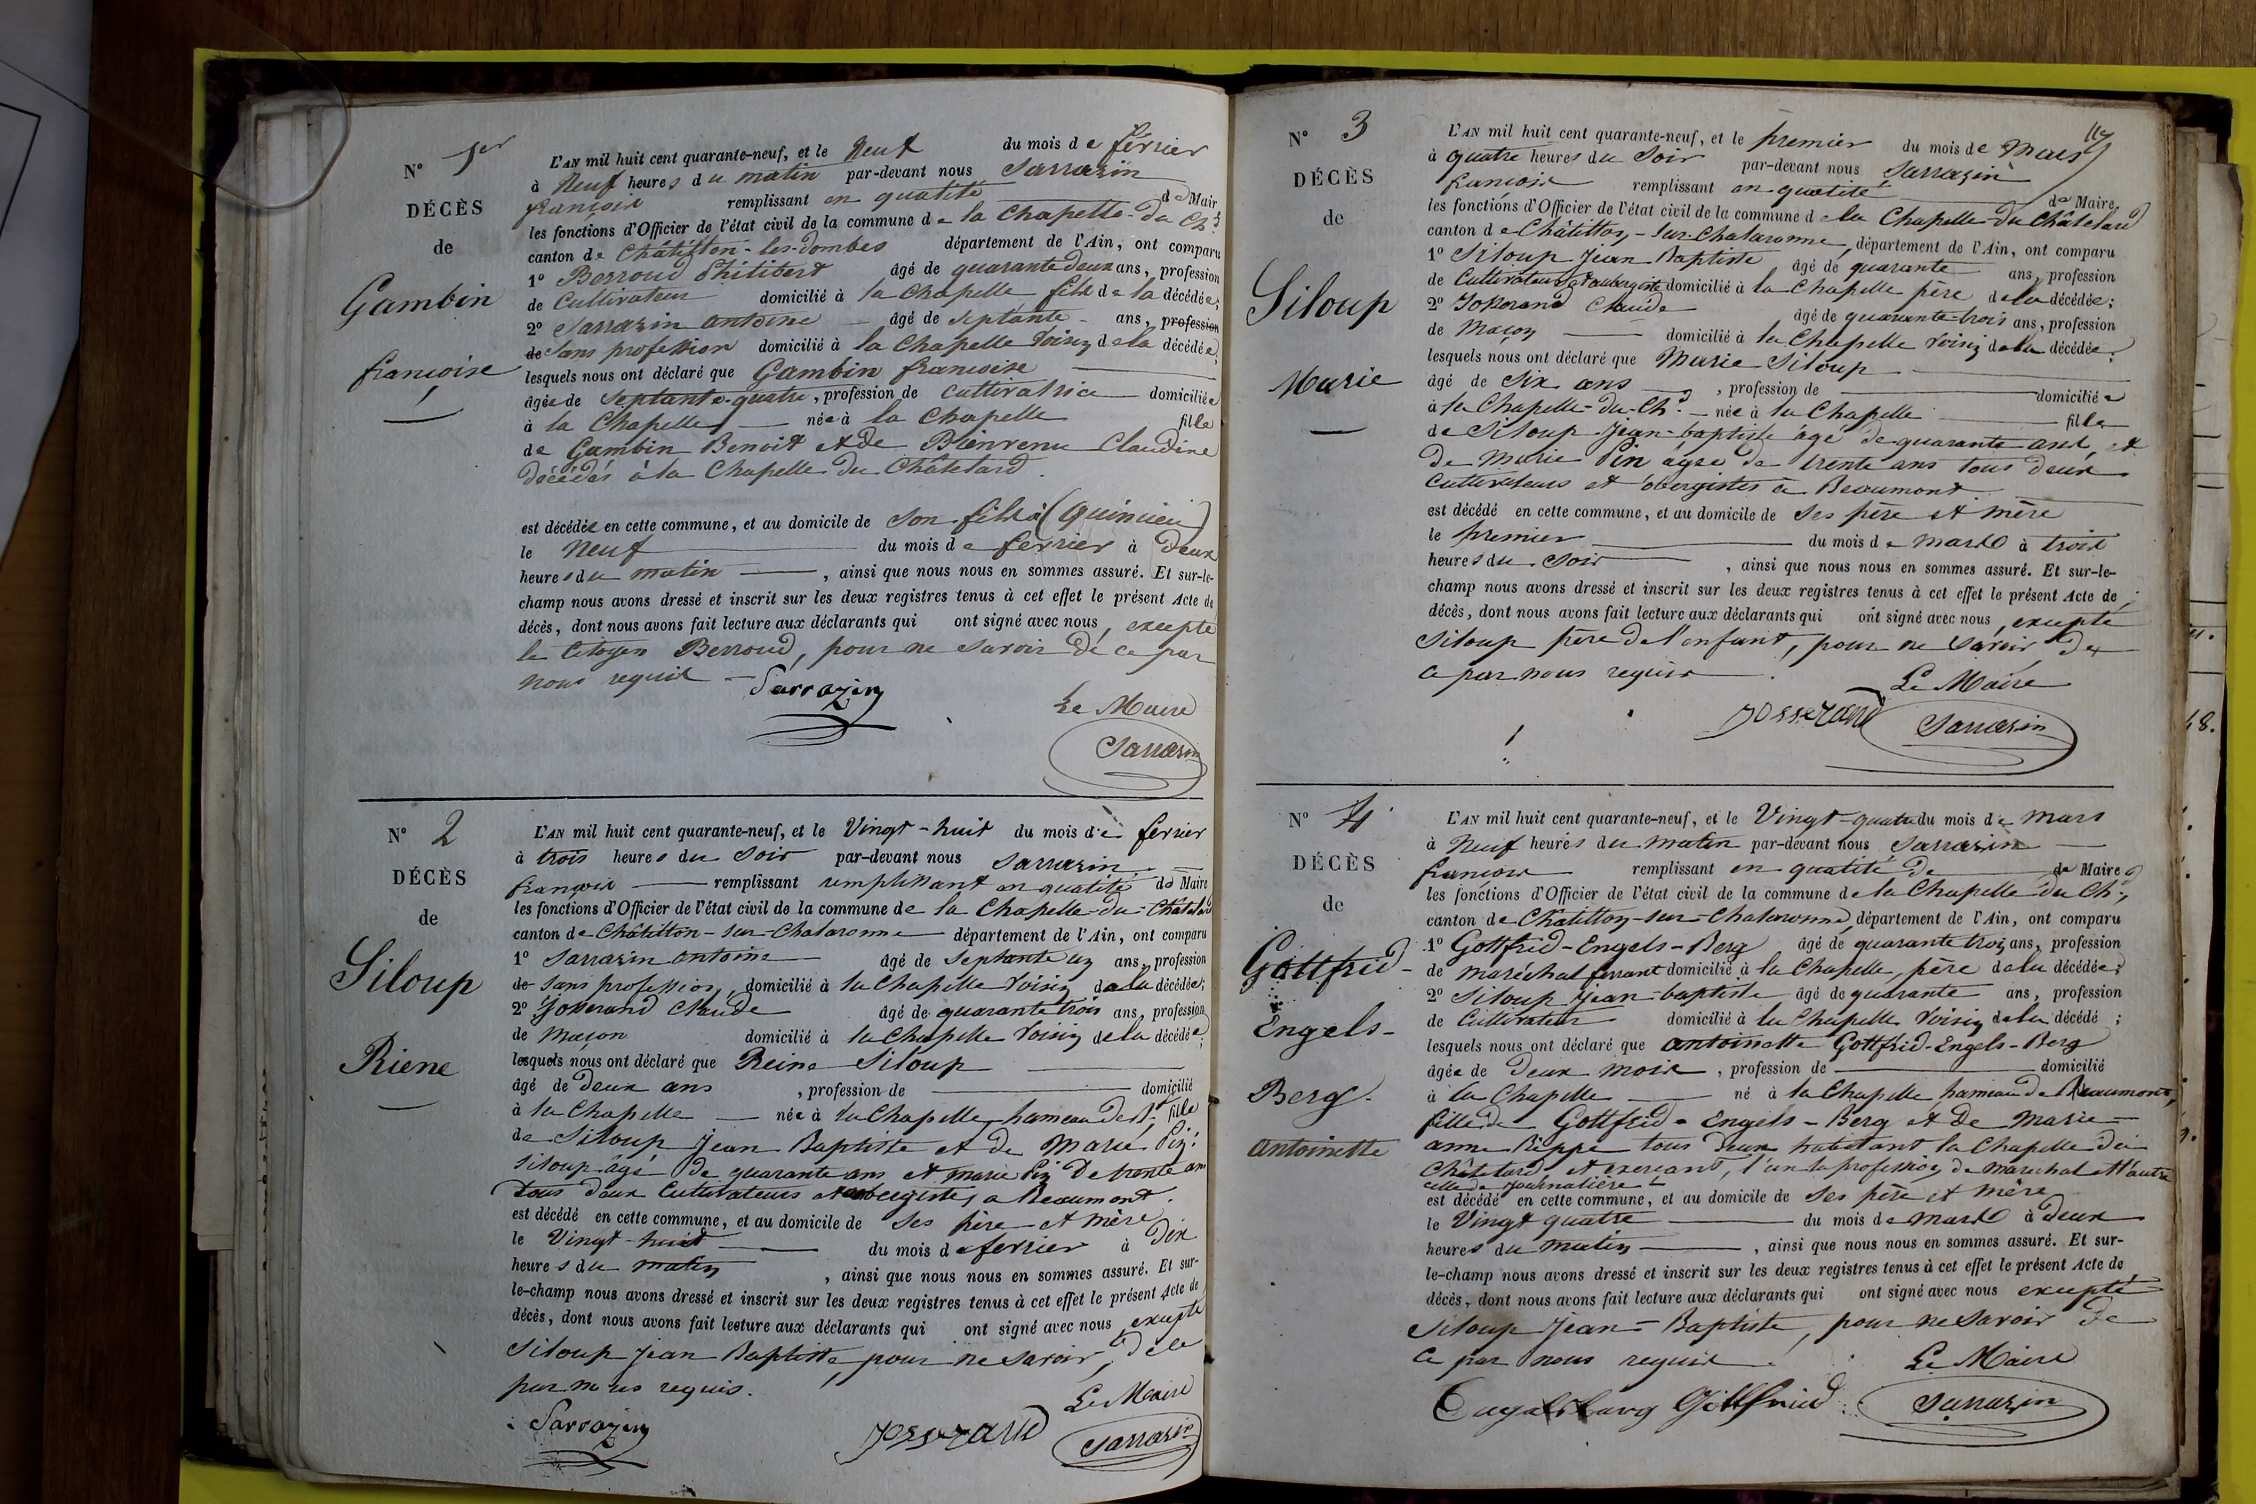 N° 1er
DÉCÈS
de
Gambin
françoise
L'AN mil huit cent quarante-neuf, et le Neuf du mois de février
à Neuf heures du matin par-devant nous Sarrazin
françois remplissant en qualité de Maire
les fonctions d'Officier de l'état civil de la commune de la Chapelle-du Ch.
canton de Châtillon-les-Dombes département de l'Ain, ont comparu
1° Berroud Philibert âgé de quarante deux ans, profession
de Cultivateur domicilié à la Chapelle fils de la décédée;
2° Sarrazin antoine âgé de Septante ans, profession
de Sans profession domicilié à la Chapelle Voisin de la décédée;
lesquels nous ont déclaré que Gambin françoise
âgée de Septante-quatre, profession de cultivatrice domiciliée
à la Chapelle née à la Chapelle fille
de Gambin Benoit et de Bienvenu Claudine
décédés à la Chapelle du Châtelard.
est décédée en cette commune, et au domicile de son fils à (Quincieu)
le Neuf du mois de février à Deux
heures du matin, ainsi que nous nous en sommes assuré. Et sur-le-
champ nous avons dressé et inscrit sur les deux registres tenus à cet effet le présent Acte de
décès, dont nous avons fait lecture aux déclarants qui ont signé avec nous, excepté
le Citoyen Berroud, pour ne savoir de ce par
nous requis
Sarrazin
Le Maire
Sarrazin
N° 2
DÉCÈS
de
Siloup
Riene
L'AN mil huit cent quarante-neuf, et le Vingt-huit du mois de fevrier
à trois heures du Soir par-devant nous Sarrazin
françois remplissant remplissant en qualité de Maire
les fonctions d'Officier de l'état civil de la commune de la Chapelle-du-Châtelard
canton de Châtillon-sur-Chalaronne département de l'Ain, ont comparu
1° Sarrazin antoine âgé de Septante un ans, profession
de Sans profession, domicilié à la Chapelle Voisin de la décédée;
2° Josserand Claude âgé de quarante trois ans, profession
de Maçon domicilié à la Chapelle Voisin de la décédée;
lesquels nous ont déclaré que Reine Siloup
âgé de Deux ans, profession de domicilié
à la Chapelle née à la Chapelle hameau de fille
de Siloup Jean Baptiste et de Marie Pin:
Siloup âgé de quarante ans et marie Pin De trente ans
tous deux Cultivateurs et aubergistes, a Beaumont.
est décédé en cette commune, et au domicile de Ses père et mère
le Vingt-huit du mois de fevrier à Dix
heures du matin, ainsi que nous nous en sommes assuré. Et sur-
le-champ nous avons dressé et inscrit sur les deux registres tenus à cet effet le présent Acte de
décès, dont nous avons fait lecture aux déclarants qui ont signé avec nous excepté
Siloup Jean Baptiste, pour ne savoir, de ce
par nous requis.
Sarrazin
Josserand
Le Maire
Sarrazin
117
N° 3
DÉCÈS
de
Siloup
Marie
L'AN mil huit cent quarante-neuf, et le premier du mois de Mars
à quatre heures du Soir par-devant nous Sarrazin
françois remplissant en qualité de Maire
les fonctions d'Officier de l'état civil de la commune de la Chapelle-du Châtelard
canton de Châtillon-sur-Chalaronne, département de l'Ain, ont comparu
1° Siloup Jean Baptiste âgé de quarante ans, profession
de Cultivateur et aubergiste domicilié à la Chapelle père de la décédée;
2° Josserand Claude âgé de quarante-trois ans, profession
de Maçon domicilié à la Chapelle Voisin de la décédée;
lesquels nous ont déclaré que Marie Siloup
âgé de Six ans, profession de domiciliée
à la Chapelle-du-Ch. née à la Chapelle fille
de Siloup Jean-baptiste âgé de quarante ans, et
De Marie Pin agée de trente ans tous deux
Cultivateurs et obergistes à Beaumont
est décédé en cette commune, et au domicile de Ses père et mère
le premier du mois de mars à trois
heures du Soir, ainsi que nous nous en sommes assuré. Et sur-le-
champ nous avons dressé et inscrit sur les deux registres tenus à cet effet le présent Acte de
décès, dont nous avons fait lecture aux déclarants qui ont signé avec nous, excepté
Siloup père de l'enfant, pour ne savoir, de
ce par nous requis
Le Maire
Josserand
Sarrazin
N° 4
DÉCÈS
de
Gottfrid-
Engels-
Berg.
Antoinette
L'AN mil huit cent quarante-neuf, et le Vingt-quatre du mois de Mars
à Neuf heures du matin par-devant nous Sarrazin
françois remplissant en qualité de de Maire
les fonctions d'Officier de l'état civil de la commune de la Chapelle du Ch.,
canton de Châtillon-sur-Chalaronne, département de l'Ain, ont comparu
1° Gottfrid-Engels-Berg âgé de quarante trois ans, profession
de maréchal ferrant domicilié à la Chapelle, père de la décédée;
2° Siloup Jean-baptiste âgé de quarante ans, profession
de Cultivateur domicilié à la Chapelle Voisin de la décédé;
lesquels nous ont déclaré que antoinette Gottfrid-Engels-Berg
âgée de Deux mois, profession de domicilié
à la Chapelle né à la Chapelle hameau de Beaumont,
fille de Gottfrid-Engels-Berg et de Marie-
anne Rippe tous deux habitant la Chapelle du
Châtelard et exercant, l'un la profession de maréchal et l'autre
celle de Journalière
est décédé en cette commune, et au domicile de Ses père et mère
le Vingt quatre du mois de mars à Deux
heures du matin, ainsi que nous nous en sommes assuré. Et sur-
le-champ nous avons dressé et inscrit sur les deux registres tenus à cet effet le présent Acte de
décès, dont nous avons fait lecture aux déclarants qui ont signé avec nous excepté
Siloup Jean-Baptiste, pour ne savoir de
ce par nous requis.
Le Maire
Gottfried
Sarrazin